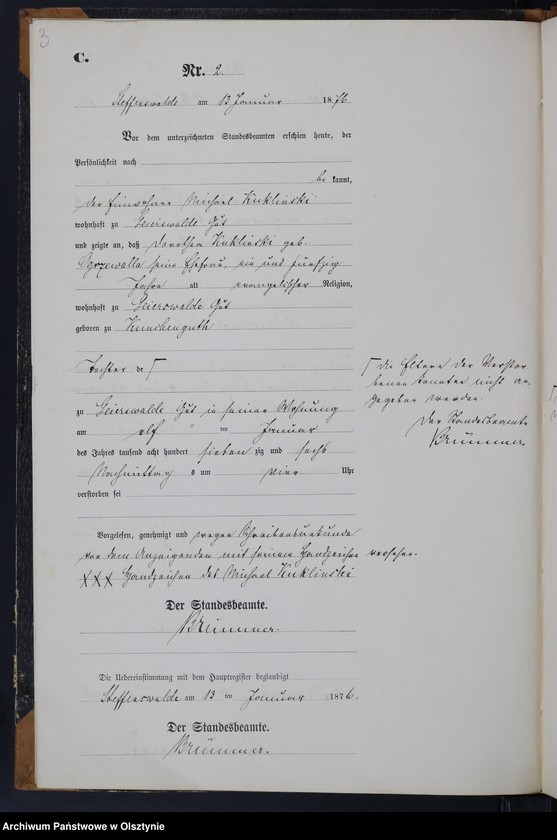 3
C.
Nr. 2.
Steffenswalde am 13 Januar 1876
Vor dem unterzeichneten Standesbeamten erschien heute, der
Persönlichkeit nach
be kannt,
der Einwohner Michael Kuklinski
wohnhaft zu Geierswalde Gut
und zeigte an, daß Dorothea Kuklinski geb.
seine Ehefrau, ein und fünfzig
Jahre alt evangelischer Religion,
wohnhaft zu Geierswalde Gut
geboren zu
Tochter de
zu Geierswalde Gut in seiner Wohnung
am elf ten Januar
des Jahres tausend acht hundert sieben zig und sechs
Nachmittag s um vier Uhr
verstorben sei
Vorgelesen, genehmigt und wegen Schreibensunkunde
von dem Anzeigenden mit seinem Handzeichen versehen.
XXX Handzeichen des Michael Kuklinski
Der Standesbeamte.
Brümmer.
Die Uebereinstimmung mit dem Hauptregister beglaubigt
Steffenswalde am 13 ten Januar 1876.
Der Standesbeamte.
Brümmer.
Die Eltern der Verstor
benen konnten nicht an
gegeben werden.
Der Standesbeamte
Brümmer.
Archiwum Państwowe w Olsztynie